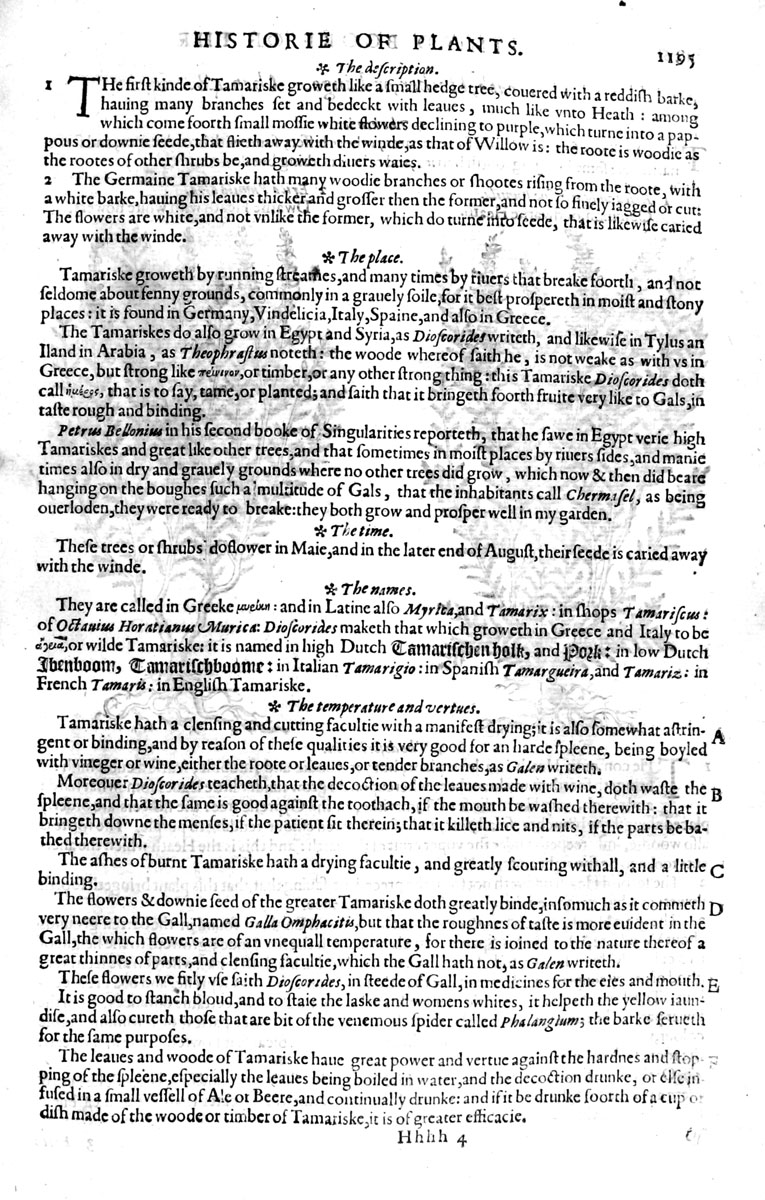 HISTORIE OF PLANTS.
1195
* The deſcription.
1 THe firſt kinde of Tamariske groweth like a ſmall hedge tree, couered with a reddiſh barke,
hauing many branches ſet and bedeckt with leaues, much like vnto Heath: among
which come foorth ſmall moſſie white flowers declining to purple, which turne into a pap-
pous or downie ſeede, that flieth away with the winde, as that of Willow is: the roote is woodie as
the rootes of other ſhrubs be, and groweth diuers waies.
2 The Germaine Tamariske hath many woodie branches or ſhootes riſing from the roote, with
a white barke, hauing his leaues thicker and groſſer then the former, and not ſo finely iagged or cut:
The flowers are white, and not vnlike the former, which do turne into ſeede, that is likewiſe caried
away with the winde.
* The place.
Tamariske groweth by running ſtreames, and many times by riuers that breake foorth, and not
ſeldome about fenny grounds, commonly in a grauely ſoile, for it beſt proſpereth in moiſt and ſtony
places: it is found in Germany, Vindelicia, Italy, Spaine, and alſo in Greece.
The Tamariskes do alſo grow in Egypt and Syria, as Dioſcorides writeth, and likewiſe in Tylus an
Iland in Arabia, as Theophraſtus noteth: the woode whereof ſaith he, is not weake as with vs in
Greece, but ſtrong like or timber, or any other ſtrong thing: this Tamariske Dioſcorides doth
call ἥμερος, that is to ſay, tame, or planted; and ſaith that it bringeth foorth fruite very like to Gals, in
taſte rough and binding.
Petrus Bellonius in his ſecond booke of Singularities reporteth, that he ſawe in Egypt verie high
Tamariskes and great like other trees, and that ſometimes in moiſt places by riuers ſides, and manie
times alſo in dry and grauely grounds where no other trees did grow, which now & then did beare
hanging on the boughes ſuch a multitude of Gals, that the inhabitants call Chermaſel, as being
ouerloden, they were ready to breake: they both grow and proſper well in my garden.
* The time.
Theſe trees or ſhrubs do flower in Maie, and in the later end of Auguſt, their ſeede is caried away
with the winde.
* The names.
They are called in Greeke μυρίκη: and in Latine alſo Myrica, and Tamarix: in ſhops Tamariſcus:
of Octauius Horatianus Murica: Dioſcorides maketh that which groweth in Greece and Italy to be
ἀγρία, or wilde Tamariske: it is named in high Dutch Tamariſchen holk, and Pork: in low Dutch
Ibenboom, Tamariſchboome: in Italian Tamarigio: in Spaniſh Tamargueira, and Tamariz: in
French Tamaris: in Engliſh Tamariske.
* The temperature and vertues.
Tamariske hath a clenſing and cutting facultie with a manifeſt drying; it is alſo ſomewhat aſtrin- A
gent or binding, and by reaſon of theſe qualities it is very good for an harde ſpleene, being boyled
with vineger or wine, either the roote or leaues, or tender branches, as Galen writeth.
Moreouer Dioſcorides teacheth, that the decoction of the leaues made with wine, doth waſte the B
ſpleene, and that the ſame is good againſt the toothach, if the mouth be waſhed therewith: that it
bringeth downe the menſes, if the patient ſit therein; that it killeth lice and nits, if the parts be ba-
thed therewith.
The aſhes of burnt Tamariske hath a drying facultie, and greatly ſcouring withall, and a little C
binding.
The flowers & downie ſeed of the greater Tamariske doth greatly binde, inſomuch as it commeth D
very neere to the Gall, named Galla Omphacitis, but that the roughnes of taſte is more euident in the
Gall, the which flowers are of an vnequall temperature, for there is ioined to the nature thereof a
great thinnes of parts, and clenſing facultie, which the Gall hath not, as Galen writeth.
Theſe flowers we fitly vſe ſaith Dioſcorides, in ſteede of Gall, in medicines for the eies and mouth. E
It is good to ſtanch bloud, and to ſtaie the laske and womens whites, it helpeth the yellow iaun-
diſe, and alſo cureth thoſe that are bit of the venemous ſpider called Phalangium; the barke ſerueth
for the ſame purpoſes.
The leaues and woode of Tamariske haue great power and vertue againſt the hardnes and ſtop-
ping of the ſpleene, eſpecially the leaues being boiled in water, and the decoction drunke, or elſe in-
fuſed in a ſmall veſſell of Ale or Beere, and continually drunke: and if it be drunke foorth of a cup or
diſh made of the woode or timber of Tamariske, it is of greater efficacie.
Hhhh 4